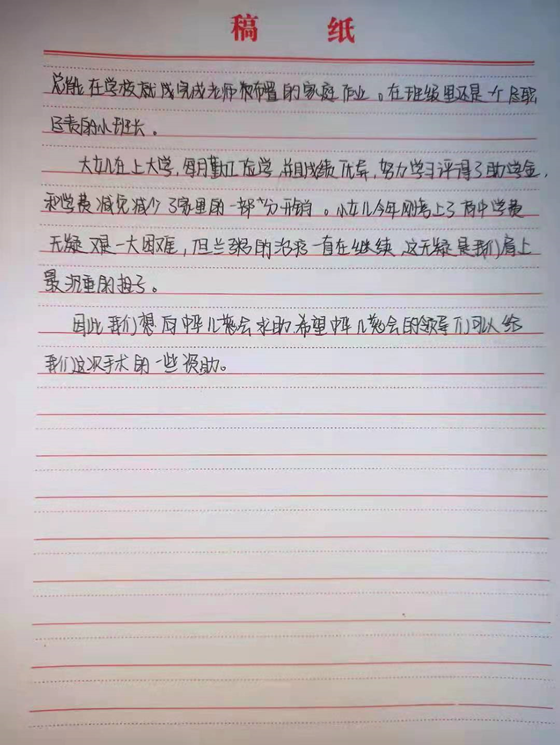 稿 纸
总能在学校就完成老师布置的家庭作业。在班级里还是个尽职
尽责的小班长。
大女儿在上大学，每月勤工俭学，并且成绩优异，努力学习评得了助学金，
和学费减免减少了家里的一部分开销。小女儿今年刚考上了高中学费
无疑又是一大困难，但兰的治疗一直在继续 这无疑是我们肩上
最沉重的担子。
因此我们想向中华儿慈会求助希望中华儿慈会的领导们可以给
我们这次手术的一些资助。